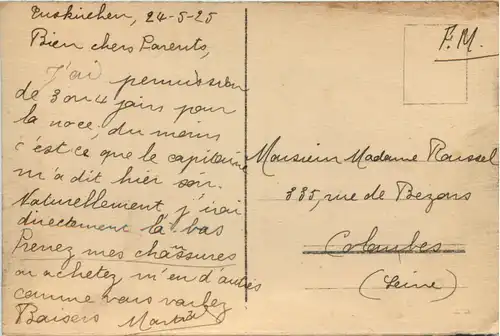 Euskirchen, 24-5-25
Bien chers Parents,
J'ai permission
de 3 ou 4 jours pour
la noce, du moins
c'est ce que le capitaine
m'a dit hier soir.
Naturellement, j'irai
directement là bas
Prenez mes chaussures
ou achetez m'en d'autres
comme vous voulez
Baisers
F.M.
Monsieur Madame Raissel
335, rue de Bezons
Colombes
(Seine)